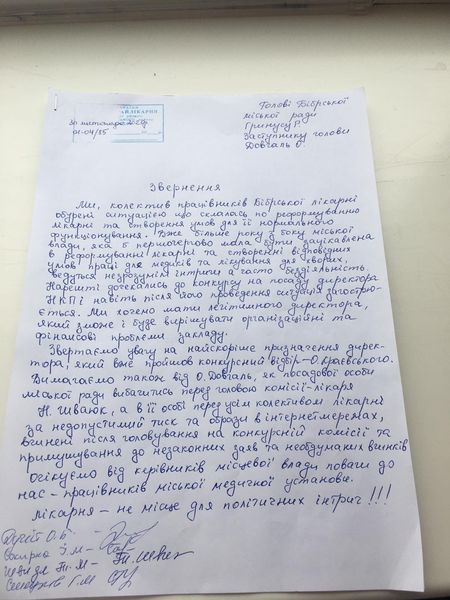 АЙЛІКАРНЯ
30 листопада 2020р
01-04/85
Голові Бібрської
міської ради
Гринусу Р.
Заступнику голови
Довгаль О.
Звернення
Ми, колектив працівників Бібрської лікарні
обурені ситуацією що склалась по реформуванню
лікарні та створення умов для її нормального
функціонування. Вже більше року з боку міської
влади, яка б першочергово мала бути зацікавлена
в реформуванні лікарні та створенні відповідних
умов праці для медиків та лікування для хворих,
ведуться незрозумілі інтриги а часто бездіяльність
Нарешті дочекались до конкурсу на посаду директора
НКП і навіть після його проведення ситуація загострю-
ється. Ми хочемо мати легітимного директора,
який зможе і буде вирішувати організаційні та
фінансові проблеми закладу.
Звертаємо увагу на найскоріше призначення дирек-
тора, який вже пройшов конкурсний відбір - О. Краєвського.
Вимагаємо також від О. Довгаль, як посадової особи
міської ради вибачитись перед головою комісії - лікаря
Н. Шванюк, а в її особі перед усім колективом лікарні
за недопустимий тиск та образи в інтернетмережах,
вчинені після головування на конкурсній комісії та
примушування до незаконних заяв та необдуманих вчинків
Очікуємо від керівників місцевої влади поваги до
нас - працівників міської медичної установи.
Лікарня - не місце для політичних інтриг!!!
О.Б.
І.М -
Швидя Т.М -
Г.М